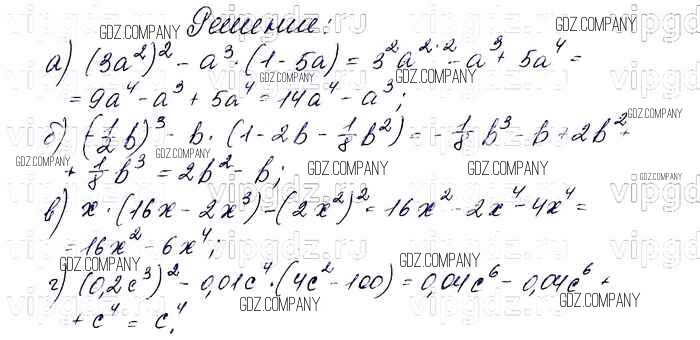 Решение:
а) (3a²)² - a³·(1-5a) = 3²a²·² - a³ + 5a⁴ =
= 9a⁴ - a³ + 5a⁴ = 14a⁴ - a³;
б) (-1/2 b)³ - b·(1-2b-1/8 b²) = -1/8·b³ - b + 2b² +
+ 1/8 b³ = 2b² - b;
в) x·(16x-2x³) - (2x²)² = 16x² - 2x⁴ - 4x⁴ =
= 16x² - 6x⁴;
г) (0,2c³)² - 0,01c⁴·(4c²-100) = 0,04c⁶ - 0,04c⁶ +
+ c⁴ = c⁴.
GDZ.COMPANY
GDZ.COMPANY
GDZ.COMPANY
GDZ.COMPANY
GDZ.COMPANY
GDZ.COMPANY
GDZ.COMPANY
GDZ.COMPANY
GDZ.COMPANY
GDZ.COMPANY
GDZ.COMPANY
GDZ.COMPANY
GDZ.COMPANY
GDZ.COMPANY
vipgdz.ru
vipgdz.ru
vipgdz.ru
vipgdz.ru